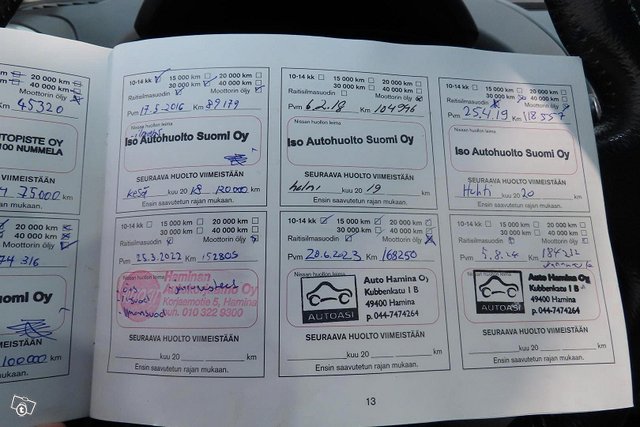 20 000 km
40 000 km
Moottorin öljy
Km 45320
AUTOPISTE OY
100 NUMMELA
75000 km
rajan mukaan.
20 000 km
40 000 km
Moottorin öljy
74 316
Suomi Oy
VIIMEISTÄÄN
100000 km
rajan mukaan.
10-14 kk 15 000 km 20 000 km
30 000 km 40 000 km
Raitisilmasuodin Moottorin öljy
Pvm 17.5.2016 Km 89179
Nissan huollon leima
Iso Autohuolto Suomi Oy
SEURAAVA HUOLTO VIIMEISTÄÄN
kesä kuu 20 18 120000 km
Ensin saavutetun rajan mukaan.
10-14 kk 15 000 km 20 000 km
30 000 km 40 000 km
Raitisilmasuodin Moottorin öljy
Pvm 6.2.18 Km 104996
Nissan huollon leima
Iso Autohuolto Suomi Oy
SEURAAVA HUOLTO VIIMEISTÄÄN
helmi kuu 20 19 km
Ensin saavutetun rajan mukaan.
10-14 kk 15 000 km 20 000 km
30 000 km 40 000 km
Raitisilmasuodin Moottorin öljy
Pvm 25.4.19 Km 118557
Nissan huollon leima
Iso Autohuolto Suomi Oy
SEURAAVA HUOLTO VIIMEISTÄÄN
Huhti kuu 20 20 km
Ensin saavutetun rajan mukaan.
10-14 kk 15 000 km 20 000 km
30 000 km 40 000 km
Raitisilmasuodin Moottorin öljy
Pvm 25.3.2022 Km 152805
Nissan huollon leima
Haminan
Korjaamotie 5, Hamina
puh. 010 322 9300
SEURAAVA HUOLTO VIIMEISTÄÄN
kuu 20 km
Ensin saavutetun rajan mukaan.
10-14 kk 15 000 km 20 000 km
30 000 km 40 000 km
Raitisilmasuodin Moottorin öljy
Pvm 20.6.2023 Km 168250
Nissan huollon leima
AUTOASI
Auto Hamina Oy
Kubbenkatu 1 B
49400 Hamina
p. 044-7474264
SEURAAVA HUOLTO VIIMEISTÄÄN
kuu 20 km
Ensin saavutetun rajan mukaan.
10-14 kk 15 000 km 20 000 km
30 000 km 40 000 km
Raitisilmasuodin Moottorin öljy
Pvm 5.8.24 Km 184212
Nissan huollon leima
AUTOASI
Auto Hamina Oy
Kubbenkatu 1 B
49400 Hamina
p. 044-7474264
SEURAAVA HUOLTO VIIMEISTÄÄN
kuu 20 km
Ensin saavutetun rajan mukaan.
13